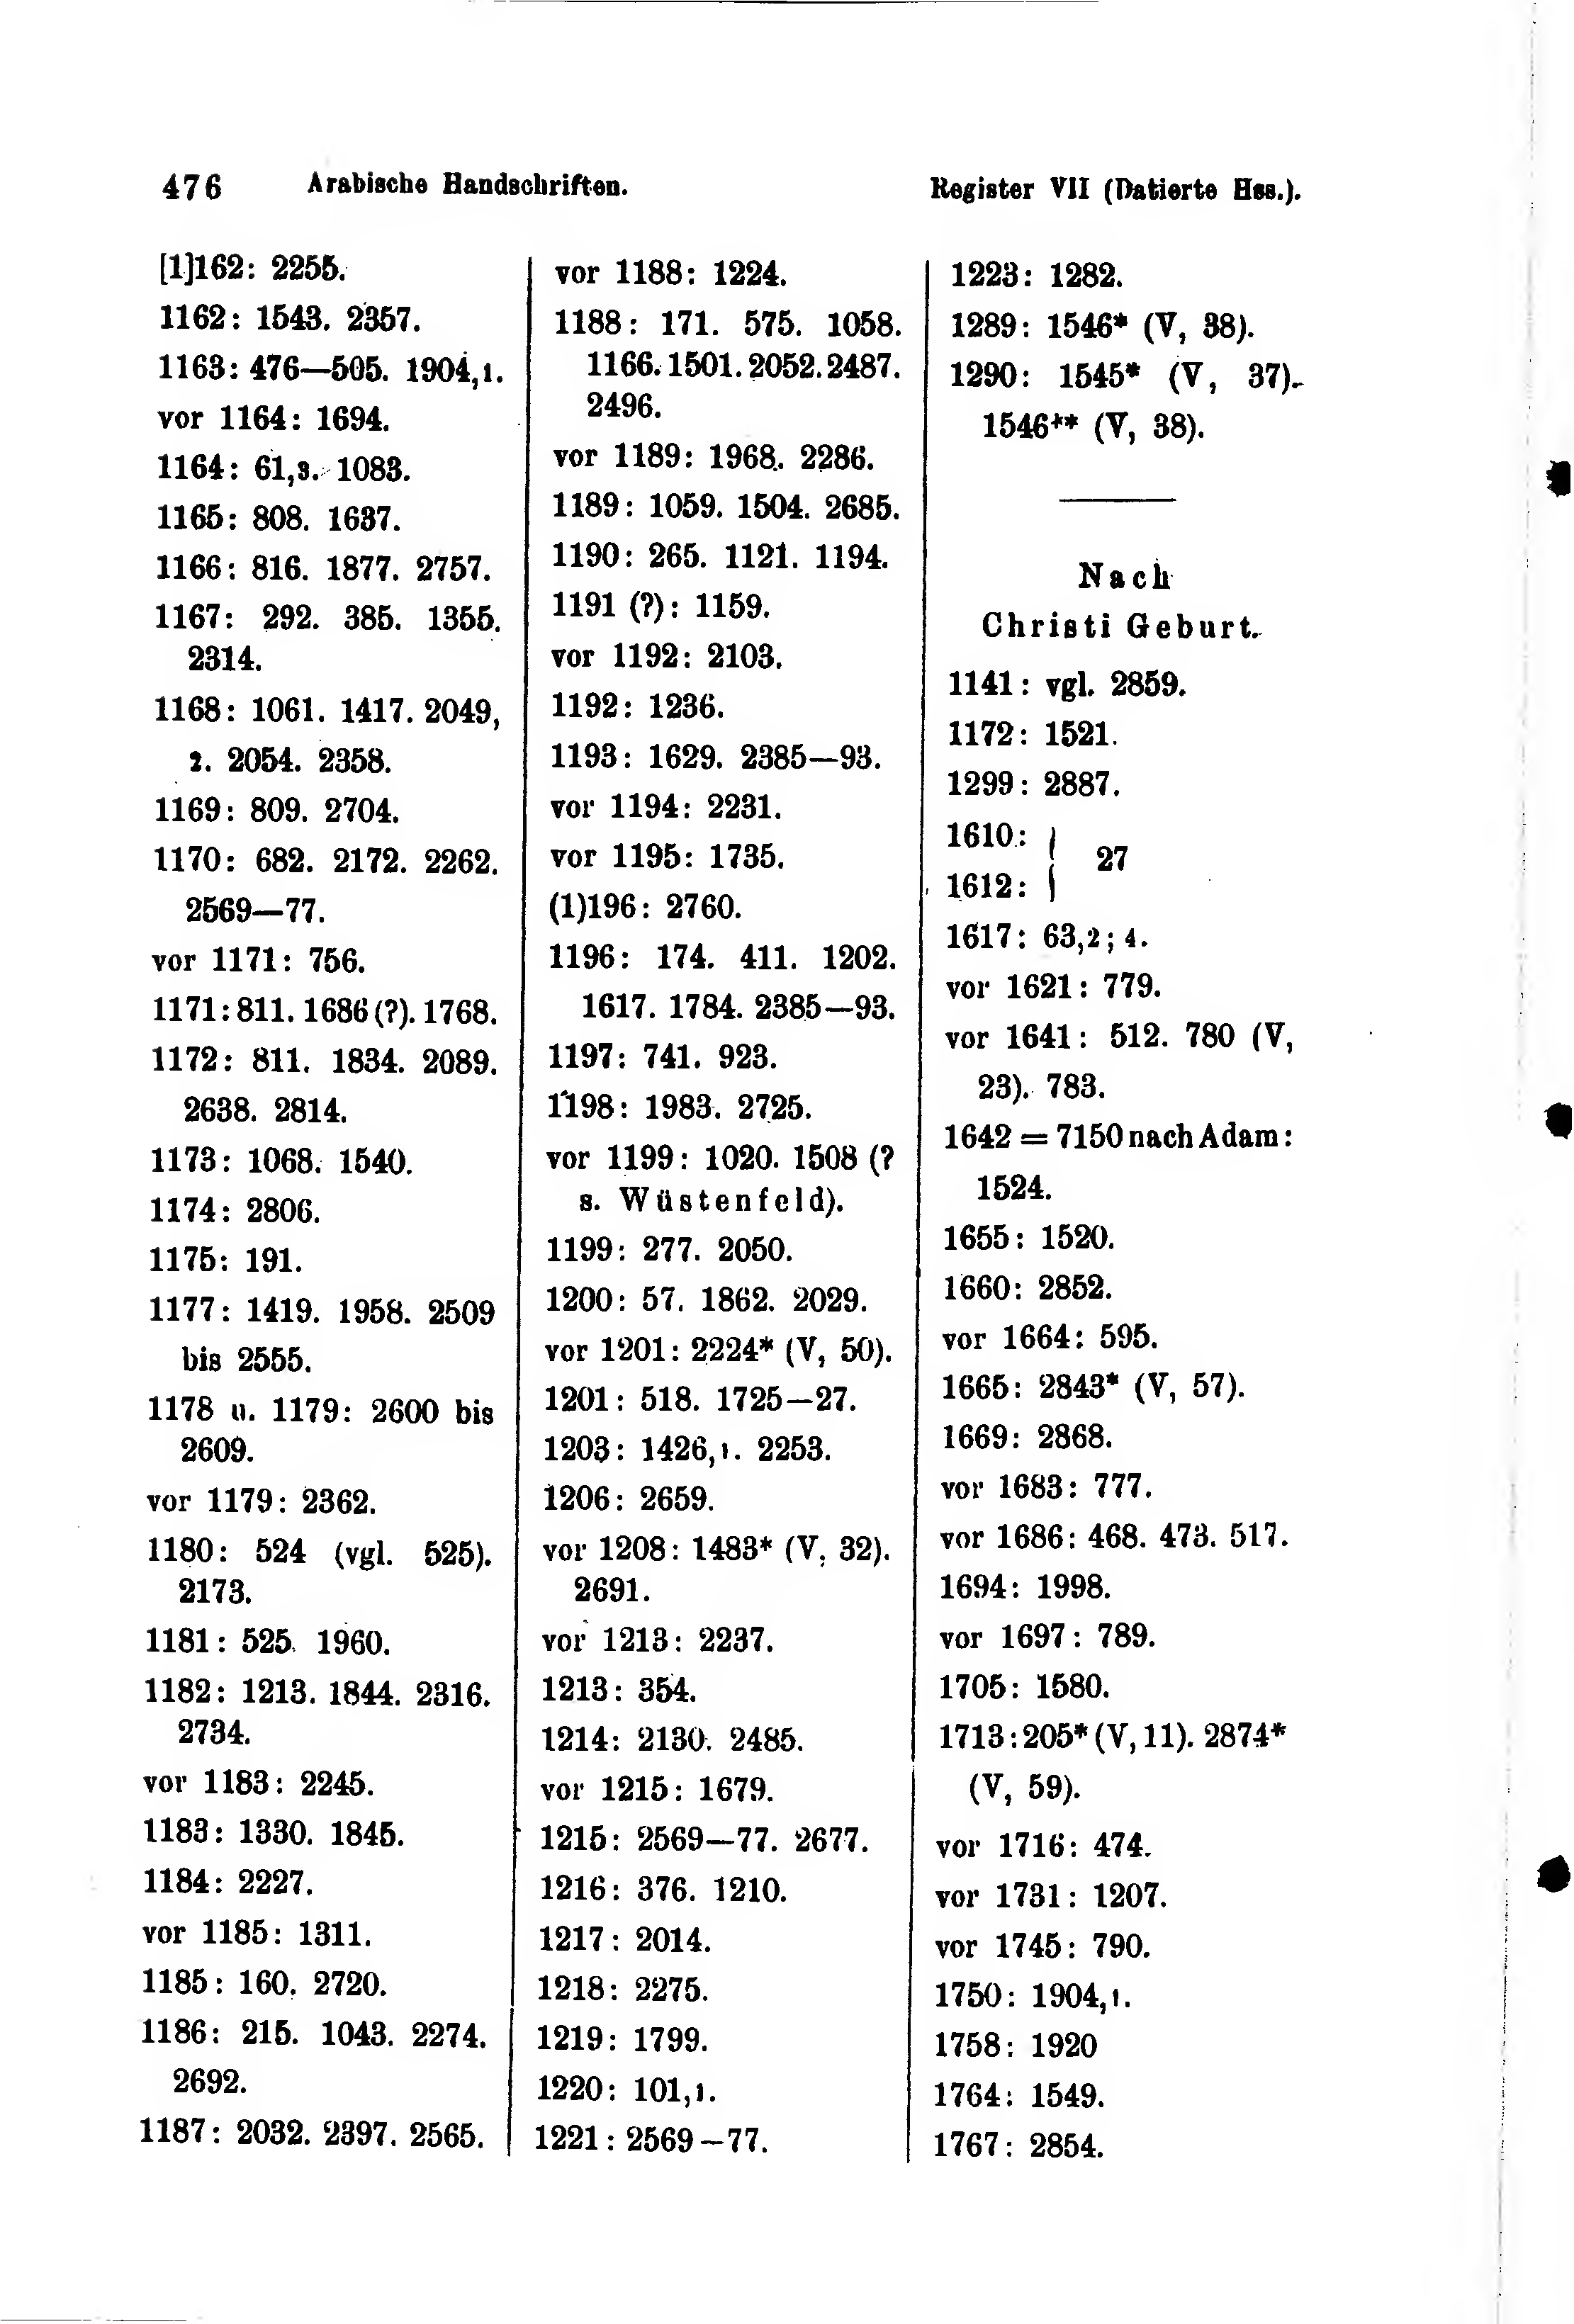 476 Arabische Handschriften. Register VII (Datierte Hss.).
[1]162: 2255.
1162: 1543. 2357.
1163: 476—505. 1904,1.
vor 1164: 1694.
1164: 61,3. 1083.
1165: 808. 1637.
1166: 816. 1877. 2757.
1167: 292. 385. 1355.
2314.
1168: 1061. 1417. 2049,
2. 2054. 2358.
1169: 809. 2704.
1170: 682. 2172. 2262.
2569—77.
vor 1171: 756.
1171: 811. 1686 (?). 1768.
1172: 811. 1834. 2089.
2638. 2814.
1173: 1068. 1540.
1174: 2806.
1175: 191.
1177: 1419. 1958. 2509
bis 2555.
1178 u. 1179: 2600 bis
2609.
vor 1179: 2362.
1180: 524 (vgl. 525).
2173.
1181: 525. 1960.
1182: 1213. 1844. 2316.
2734.
vor 1183: 2245.
1183: 1330. 1845.
1184: 2227.
vor 1185: 1311.
1185: 160. 2720.
1186: 215. 1043. 2274.
2692.
1187: 2032. 2397. 2565.
vor 1188: 1224.
1188: 171. 575. 1058.
1166. 1501. 2052. 2487.
2496.
vor 1189: 1968. 2286.
1189: 1059. 1504. 2685.
1190: 265. 1121. 1194.
1191 (?): 1159.
vor 1192: 2103.
1192: 1236.
1193: 1629. 2385—93.
vor 1194: 2231.
vor 1195: 1735.
(1)196: 2760.
1196: 174. 411. 1202.
1617. 1784. 2385—93.
1197: 741. 923.
1198: 1983. 2725.
vor 1199: 1020. 1508 (?
s. Wüstenfeld).
1199: 277. 2050.
1200: 57. 1862. 2029.
vor 1201: 2224* (V, 50).
1201: 518. 1725—27.
1203: 1426,1. 2253.
1206: 2659.
vor 1208: 1483* (V, 32).
2691.
vor 1213: 2237.
1213: 354.
1214: 2130. 2485.
vor 1215: 1679.
1215: 2569—77. 2677.
1216: 376. 1210.
1217: 2014.
1218: 2275.
1219: 1799.
1220: 101,1.
1221: 2569—77.
1223: 1282.
1289: 1546* (V, 38).
1290: 1545* (V, 37).
1546** (V, 38).
Nach
Christi Geburt.
1141: vgl. 2859.
1172: 1521.
1299: 2887.
1610: }
27
1612: }
1617: 63,2; 4.
vor 1621: 779.
vor 1641: 512. 780 (V,
23). 783.
1642 = 7150 nach Adam:
1524.
1655: 1520.
1660: 2852.
vor 1664: 595.
1665: 2843* (V, 57).
1669: 2868.
vor 1683: 777.
vor 1686: 468. 473. 517.
1694: 1998.
vor 1697: 789.
1705: 1580.
1713: 205* (V, 11). 2874*
(V, 59).
vor 1716: 474.
vor 1731: 1207.
vor 1745: 790.
1750: 1904,1.
1758: 1920
1764: 1549.
1767: 2854.